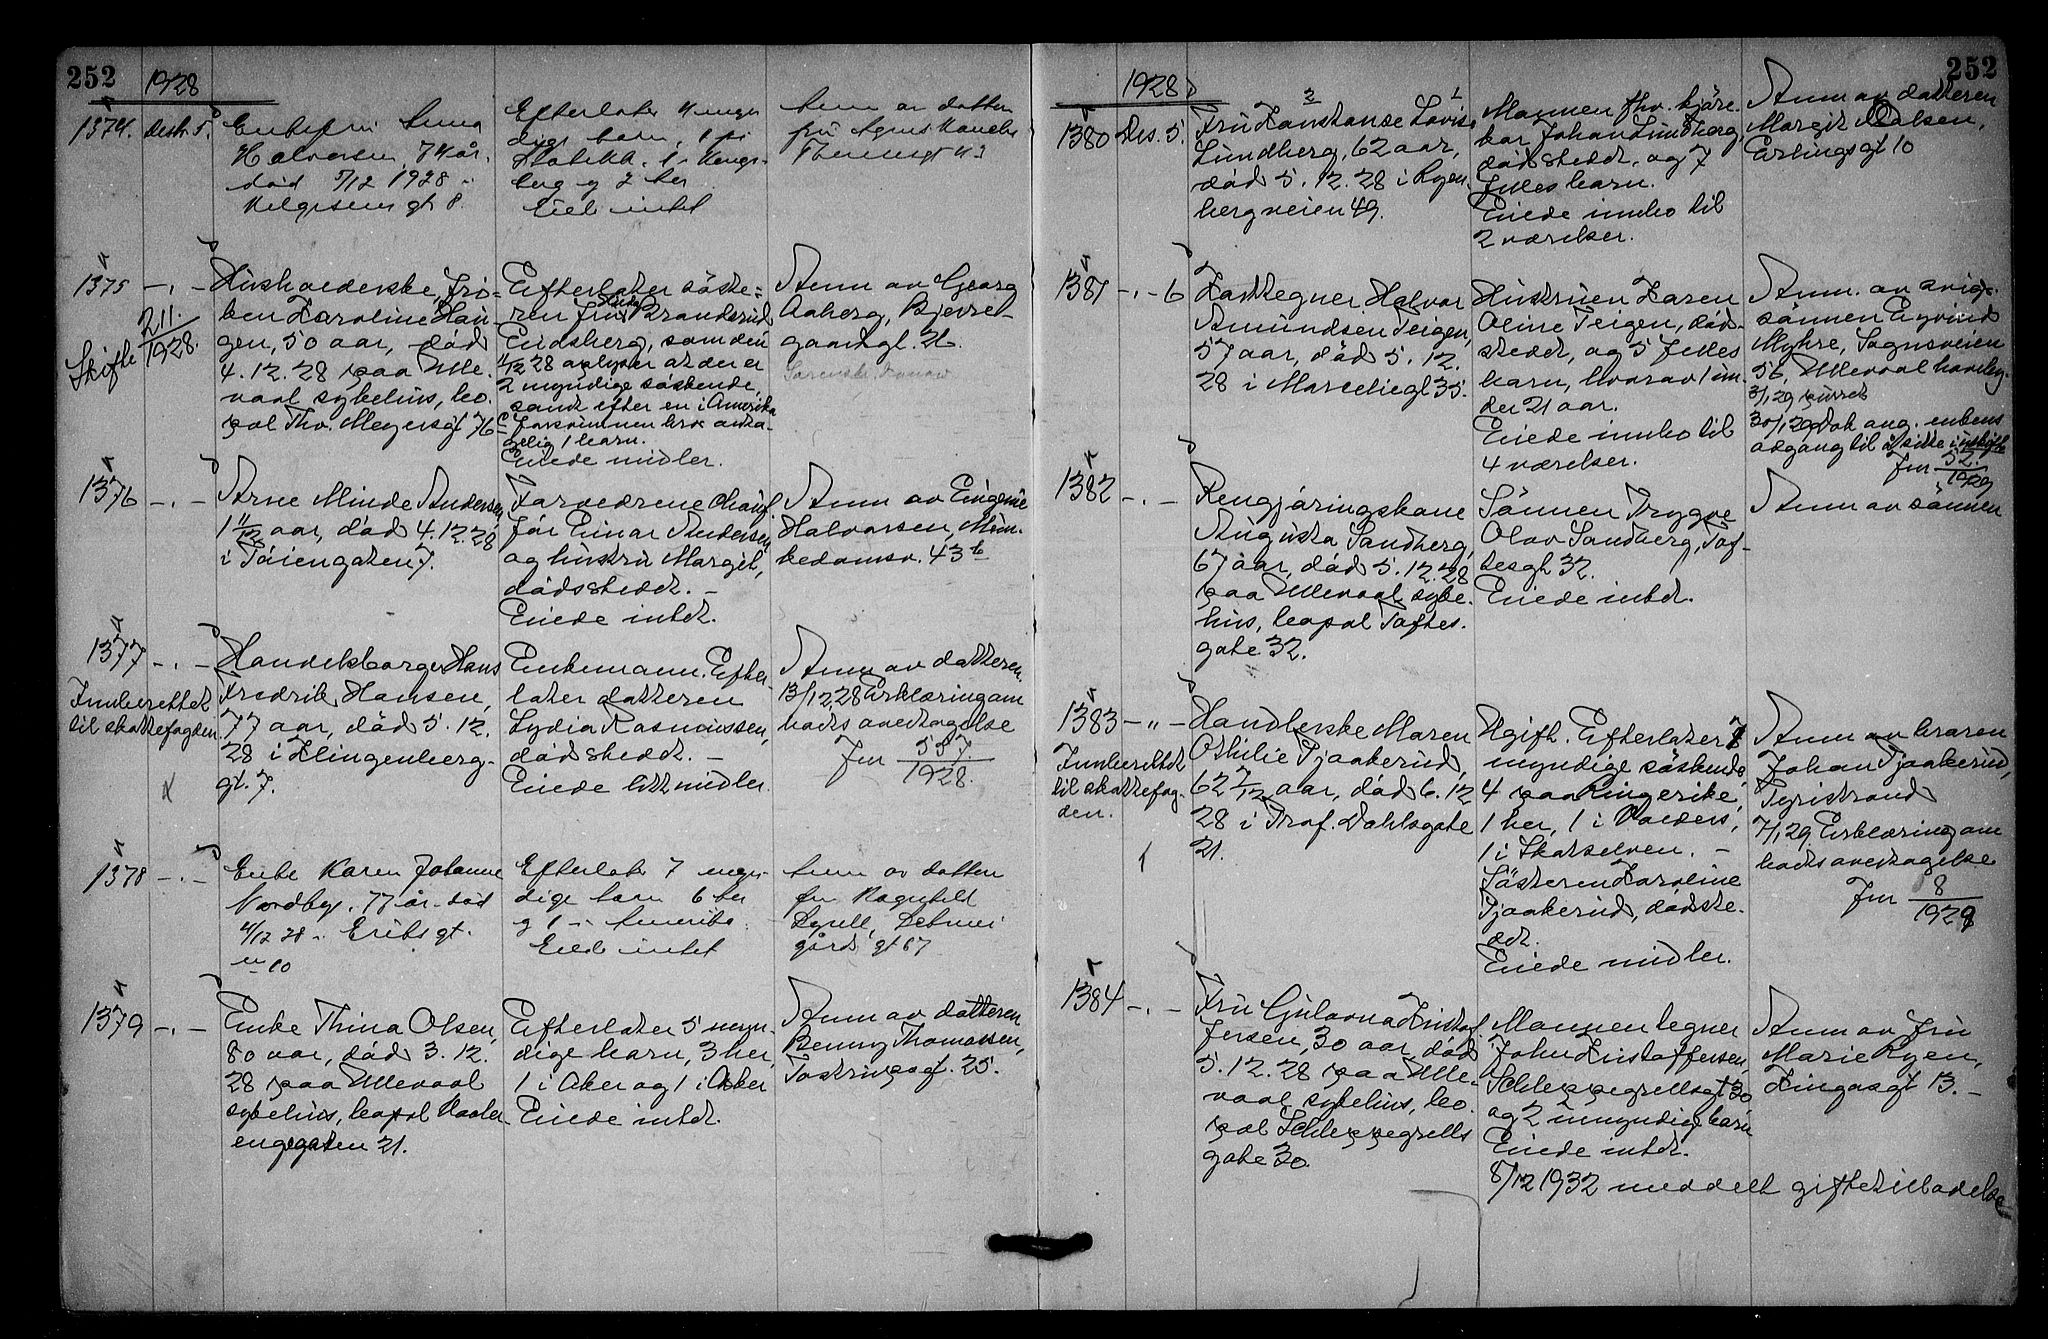 252
1928
1374. Desbr 5.
Enkefru Anna
Halvorsen, 74 år.
død 5/12 1928 i
Helgesens gt 8.
Efterlater 4 myn
dige barn, 1 på
1 Kongs-
berg og 2 her
Eied intet
Anm av datter
fru Agnes
1375 -.-
Skifte 211./1928.
Husholderske, frø-
ken Karoline Hau-
gen, 50 aar, død
4.12.28 paa Ulle-
vaal sykehus, bo-
pæl Thv. Meyersgt 76
Efterlater søste-
ren fru Brandsrud
Eidsberg, som den
11/12 28 oplyser at der er
2 myndige søskende
samt efter en i Amerika
forsvunnen bror anta-
gelig 1 barn.
Eiede midler.
Anm av Georg
Aaberg, Bjerreg-
gaardsgt. 26.
1376 -.-
Arne Minde Andersen
1 11/12 aar, død 4.12.28
i Tøiengaten 7.
Forældrene chauf-
før Einar Andersen
og hustru Margit,
dødsstedet. -
Eiede intet.
Anm av Eugenie
Halvorsen, Mun-
kedamsv. 43b
1377 -.-
Innberettet
til skattefogden
Handelsborger Hans
Fredrik Hansen,
77 aar, død 5.12.
28 i Klingenberg-
gt. 7.
Enkemann. Efter-
later datteren
Lydia Rasmussen,
dødsstedet. -
Eiede litt midler.
Anm av datteren.
13/12,28 Erklæring om
boets overtagelse
Jnr 557./1928.
1378 -.-
Enke Karen Johanne
Nordby. 77 år. død
4/12 28 i Eriks gt.
no 10
Efterlater 7 myn-
dige barn 6 her
og 1 i Amerika.
Eiede intet
Anm av datter
fru Ragnhild
gårds gt 67
1379 -.-
Enke Thina Olsen,
80 aar, død 3.12.
28 paa Ullevaal
sykehus, bopæl Vaaler
engegaten 21.
Efterlater 5 myn-
dige barn, 3 her,
1 i Aker og 1 i Asker
Eiede intet.
Anm av datteren
Benny Thomassen,
gt. 25.
252
1928
1380 Des. 5.
2 1
Fru Konstanse Lovise
Lundberg, 62 aar,
død 5.12.28 i Ryen-
bergveien 49.
Mannen fhv. kjøre-
kar Johan Lundberg,
dødsstedet, og 7
felles barn.
Eiede innbo til
2 værelser.
Anm av datteren
Margit Olsen,
Erlingsgt 10
1381 -.- 6
Karttegner Halvor
Amundsen Teigen,
57 aar, død 5.12.
28 i Marceliegt 35.
Hustruen Karen
Oline Teigen, død-
stedet, og 5 felles
barn, hvorav 1 un-
der 21 aar.
Eiede innbo til
4 værelser.
Anm. av
sønnen Eyvind
Myhre, Sognsveien
56, Ullevaal haveby.
3/1,29 purret
30/1,29 Dok ang. enkens
adgang til å sitte i uskifte
Jnr 52./1929
1382 -.-
Rengjøringskone
Augusta Sandberg,
67 aar, død 5.12.28
paa Ullevaal syke-
hus, bopæl Toftes-
gate 32.
Sønnen Trygve
Olav Sandberg, Tof-
tesgt 32.
Eiede intet.
Anm av sønnen
1383 -"-
Innberettet
til skattefog-
den.
Handlerske Maren
Othilie Tjaakerud,
62 7/12 aar, død 6.12
28 i Prof. Dahlsgate
21.
Ugift. Efterlater 7
myndige søskende
4 paa Ringerike,
1 her, 1 i Valders,
1 i Skotselven. -
Søsteren Karoline
Tjaakerud, dødste-
det.
Eiede midler.
Anm av broren
Johan Tjaakerud,
Tyristrand
7/1,29 Erklæring om
boets overtagelse
Jnr 8/1929
1384 -.-
Fru Gulovna Kristof-
fersen, 30 aar, død
5.12.28 paa Ulle-
vaal sykehus, bo-
pæl Schleppegrells
gate 30.
Mannen tegner
John Kristoffersen,
Schleppegrellsgt 30
og 2 umyndige barn
Eiede intet.
8/12 1932 meddelt giftetilladelse
Anm av fru
Marie Ryen,
Kingosgt 13. -